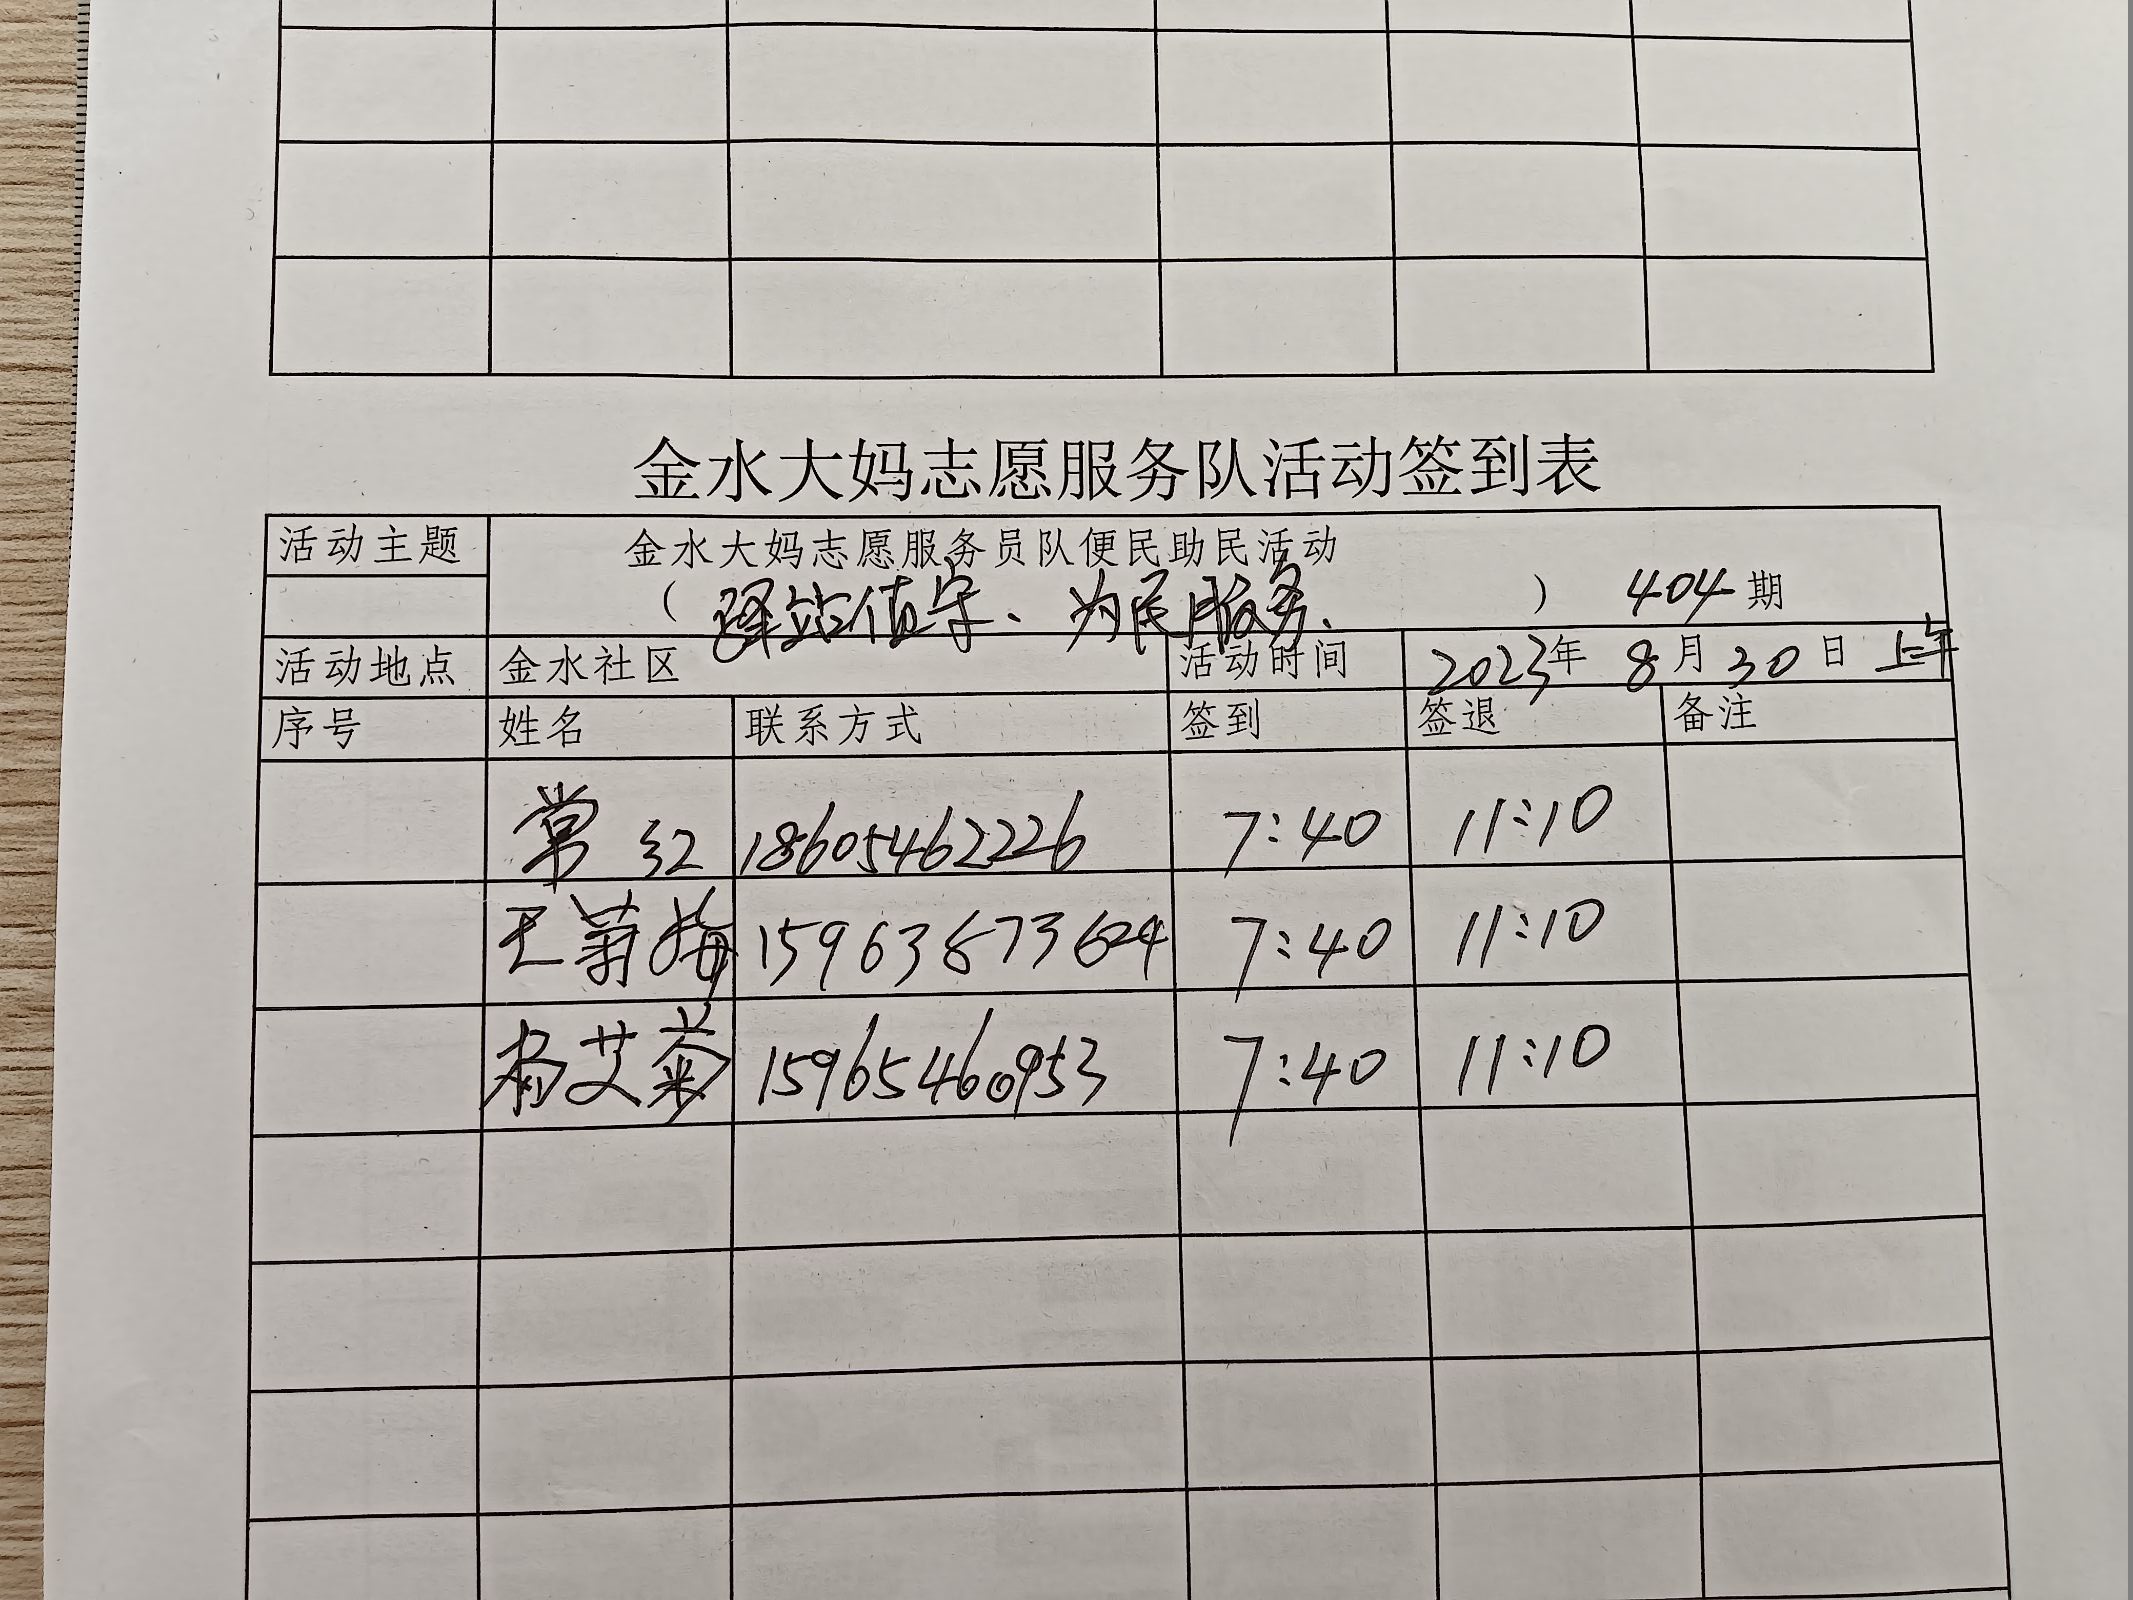 金水大妈志愿服务队活动签到表
活动主题 金水大妈志愿服务员队便民助民活动
（驿站值守、为民服务、） 404期
活动地点 金水社区 活动时间 2023年8月30日上午
序号 姓名 联系方式 签到 签退 备注
常红 18605462226 7:40 11:10
王菊梅 15963873624 7:40 11:10
杨艾菊 15965460953 7:40 11:10